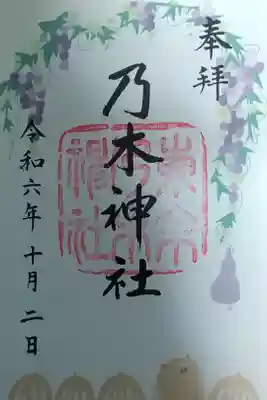 奉拝
乃木神社
令和六年十月二日